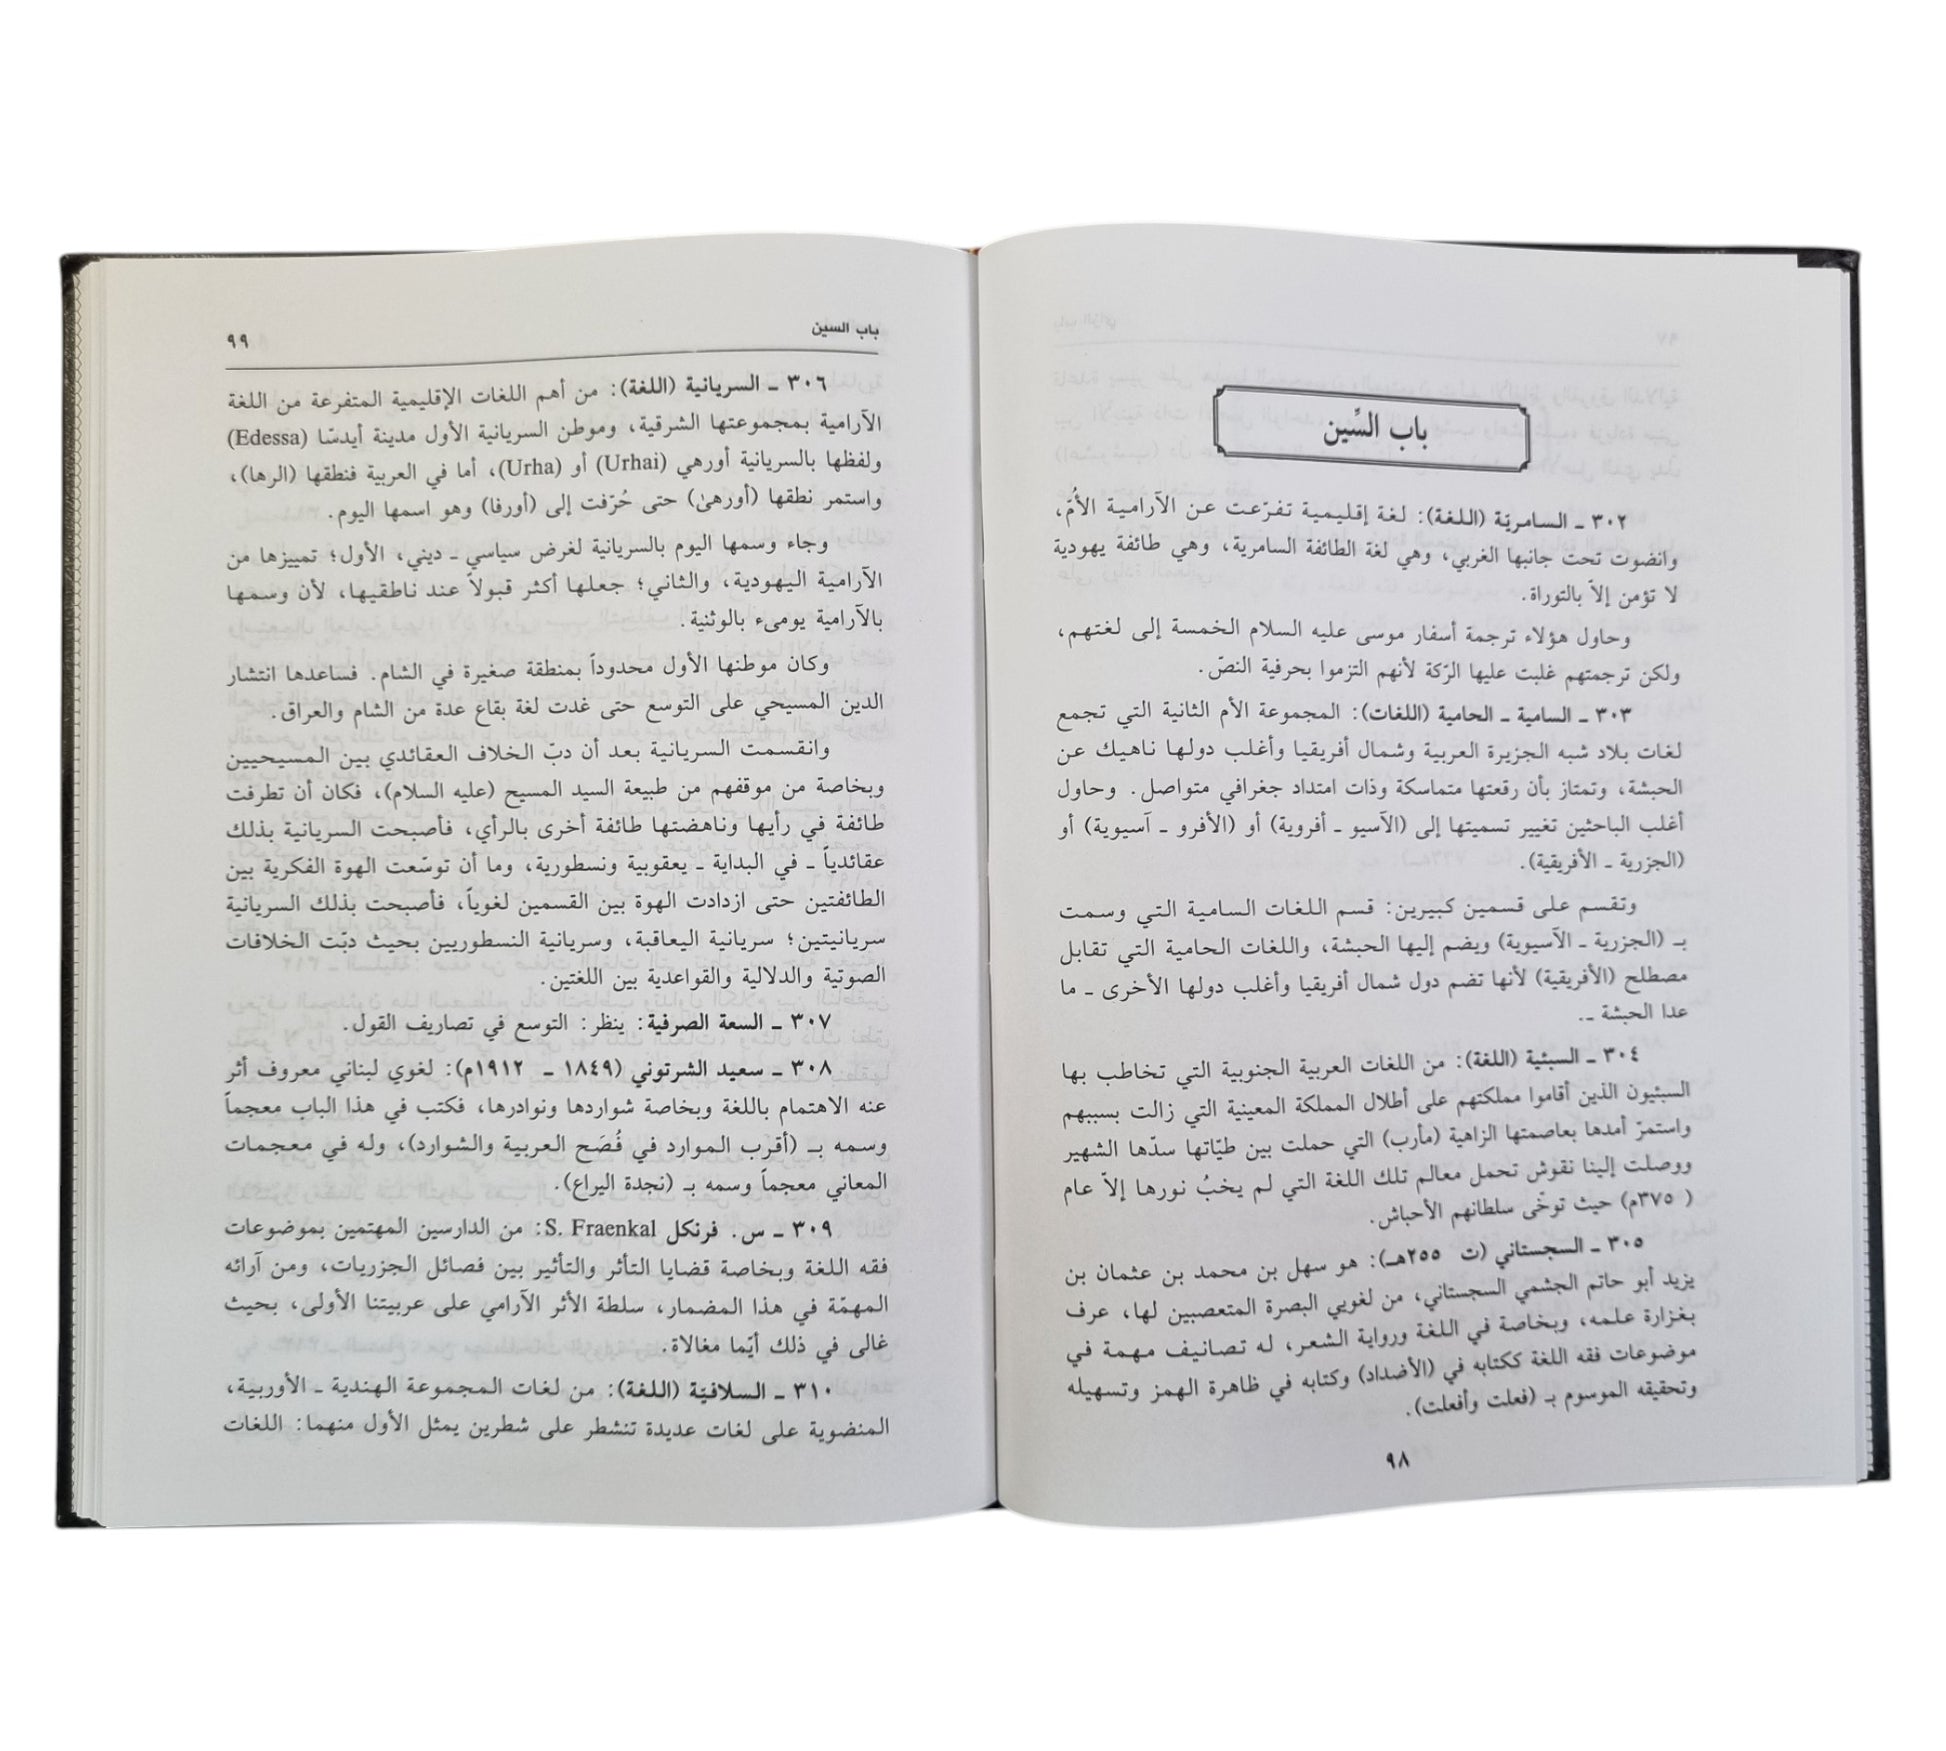 باب السِّين
٣٠٢ ـ السامريّة (اللغة): لغة إقليمية تفرّعت عن الآرامية الأُمّ،
وانضوت تحت جانبها الغربي، وهي لغة الطائفة السامرية، وهي طائفة يهودية
لا تؤمن إلاّ بالتوراة.
وحاول هؤلاء ترجمة أسفار موسى عليه السلام الخمسة إلى لغتهم،
ولكن ترجمتهم غلبت عليها الرّكة لأنهم التزموا بحرفية النصّ.
٣٠٣ ـ السامية ـ الحامية (اللغات): المجموعة الأم الثانية التي تجمع
لغات بلاد شبه الجزيرة العربية وشمال أفريقيا وأغلب دولها ناهيك عن
الحبشة، وتمتاز بأن رقعتها متماسكة وذات امتداد جغرافي متواصل. وحاول
أغلب الباحثين تغيير تسميتها إلى (الآسيو ـ أفروية) أو (الأفرو ـ آسيوية) أو
(الجزرية ـ الأفريقية).
وتقسم على قسمين كبيرين: قسم اللغات السامية التي وسمت
بـ (الجزرية ـ الآسيوية) ويضم إليها الحبشة، واللغات الحامية التي تقابل
مصطلح (الأفريقية) لأنها تضم دول شمال أفريقيا وأغلب دولها الأخرى ـ ما
عدا الحبشة ـ.
٣٠٤ ـ السبئية (اللغة): من اللغات العربية الجنوبية التي تخاطب بها
السبئيون الذين أقاموا مملكتهم على أطلال المملكة المعينية التي زالت بسببهم
واستمرّ أمدها بعاصمتها الزاهية (مأرب) التي حملت بين طيّاتها سدّها الشهير
ووصلت إلينا نقوش تحمل معالم تلك اللغة التي لم يخبُ نورها إلاّ عام
(٣٧٥م) حيث توخّى سلطانهم الأحباش.
٣٠٥ ـ السجستاني (ت ٢٥٥هـ): هو سهل بن محمد بن عثمان بن
يزيد أبو حاتم الجشمي السجستاني، من لغويي البصرة المتعصبين لها، عرف
بغزارة علمه، وبخاصة في اللغة ورواية الشعر، له تصانيف مهمة في
موضوعات فقه اللغة ككتابه في (الأضداد) وكتابه في ظاهرة الهمز وتسهيله
وتحقيقه الموسوم بـ (فعلت وأفعلت).
٩٨
باب السين
٩٩
٣٠٦ ـ السريانية (اللغة): من أهم اللغات الإقليمية المتفرعة من اللغة
الآرامية بمجموعتها الشرقية، وموطن السريانية الأول مدينة أيدسّا (Edessa)
ولفظها بالسريانية أورهي (Urhai) أو (Urha)، أما في العربية فنطقها (الرها)،
واستمر نطقها (أورهىٰ) حتى حُرّفت إلى (أورفا) وهو اسمها اليوم.
وجاء وسمها اليوم بالسريانية لغرض سياسي ـ ديني، الأول؛ تمييزها من
الآرامية اليهودية، والثاني؛ جعلها أكثر قبولاً عند ناطقيها، لأن وسمها
بالآرامية يومىء بالوثنية.
وكان موطنها الأول محدوداً بمنطقة صغيرة في الشام. فساعدها انتشار
الدين المسيحي على التوسع حتى غدت لغة بقاع عدة من الشام والعراق.
وانقسمت السريانية بعد أن دبّ الخلاف العقائدي بين المسيحيين
وبخاصة من موقفهم من طبيعة السيد المسيح (عليه السلام)، فكان أن تطرفت
طائفة في رأيها وناهضتها طائفة أخرى بالرأي، فأصبحت السريانية بذلك
عقائدياً ـ في البداية ـ يعقوبية ونسطورية، وما أن توسّعت الهوة الفكرية بين
الطائفتين حتى ازدادت الهوة بين القسمين لغوياً، فأصبحت بذلك السريانية
سريانيتين؛ سريانية اليعاقبة، وسريانية النسطوريين بحيث دبّت الخلافات
الصوتية والدلالية والقواعدية بين اللغتين.
٣٠٧ ـ السعة الصرفية: ينظر: التوسع في تصاريف القول.
٣٠٨ ـ سعيد الشرتوني (١٨٤٩ ـ ١٩١٢م): لغوي لبناني معروف أثر
عنه الاهتمام باللغة وبخاصة شواردها ونوادرها، فكتب في هذا الباب معجماً
وسمه بـ (أقرب الموارد في فُصَح العربية والشوارد)، وله في معجمات
المعاني معجماً وسمه بـ (نجدة اليراع).
٣٠٩ ـ س. فرنكل S. Fraenkal: من الدارسين المهتمين بموضوعات
فقه اللغة وبخاصة قضايا التأثر والتأثير بين فصائل الجزريات، ومن آرائه
المهمّة في هذا المضمار، سلطة الأثر الآرامي على عربيتنا الأولى، بحيث
غالى في ذلك أيّما مغالاة.
٣١٠ ـ السلافيّة (اللغة): من لغات المجموعة الهندية ـ الأوربية،
المنضوية على لغات عديدة تنشطر على شطرين يمثل الأول منهما: اللغات